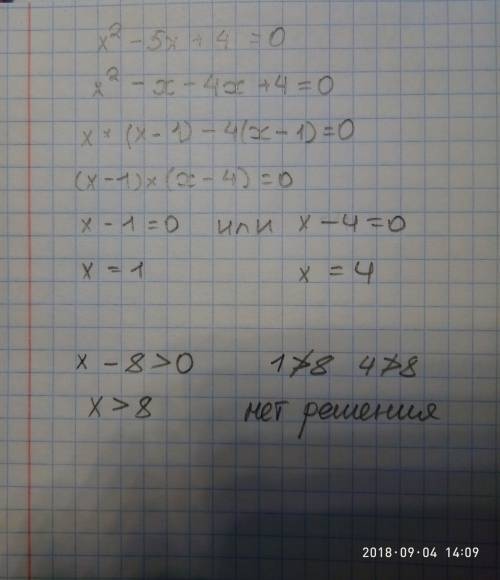 x² - 5x + 4 = 0
x² - x - 4x + 4 = 0
x × (x - 1) - 4(x - 1) = 0
(x - 1) × (x - 4) = 0
x - 1 = 0 или x - 4 = 0
x = 1 x = 4
x - 8 > 0 1 ≯ 8 4 ≯ 8
x > 8 нет решения
2018·09·04 14:09